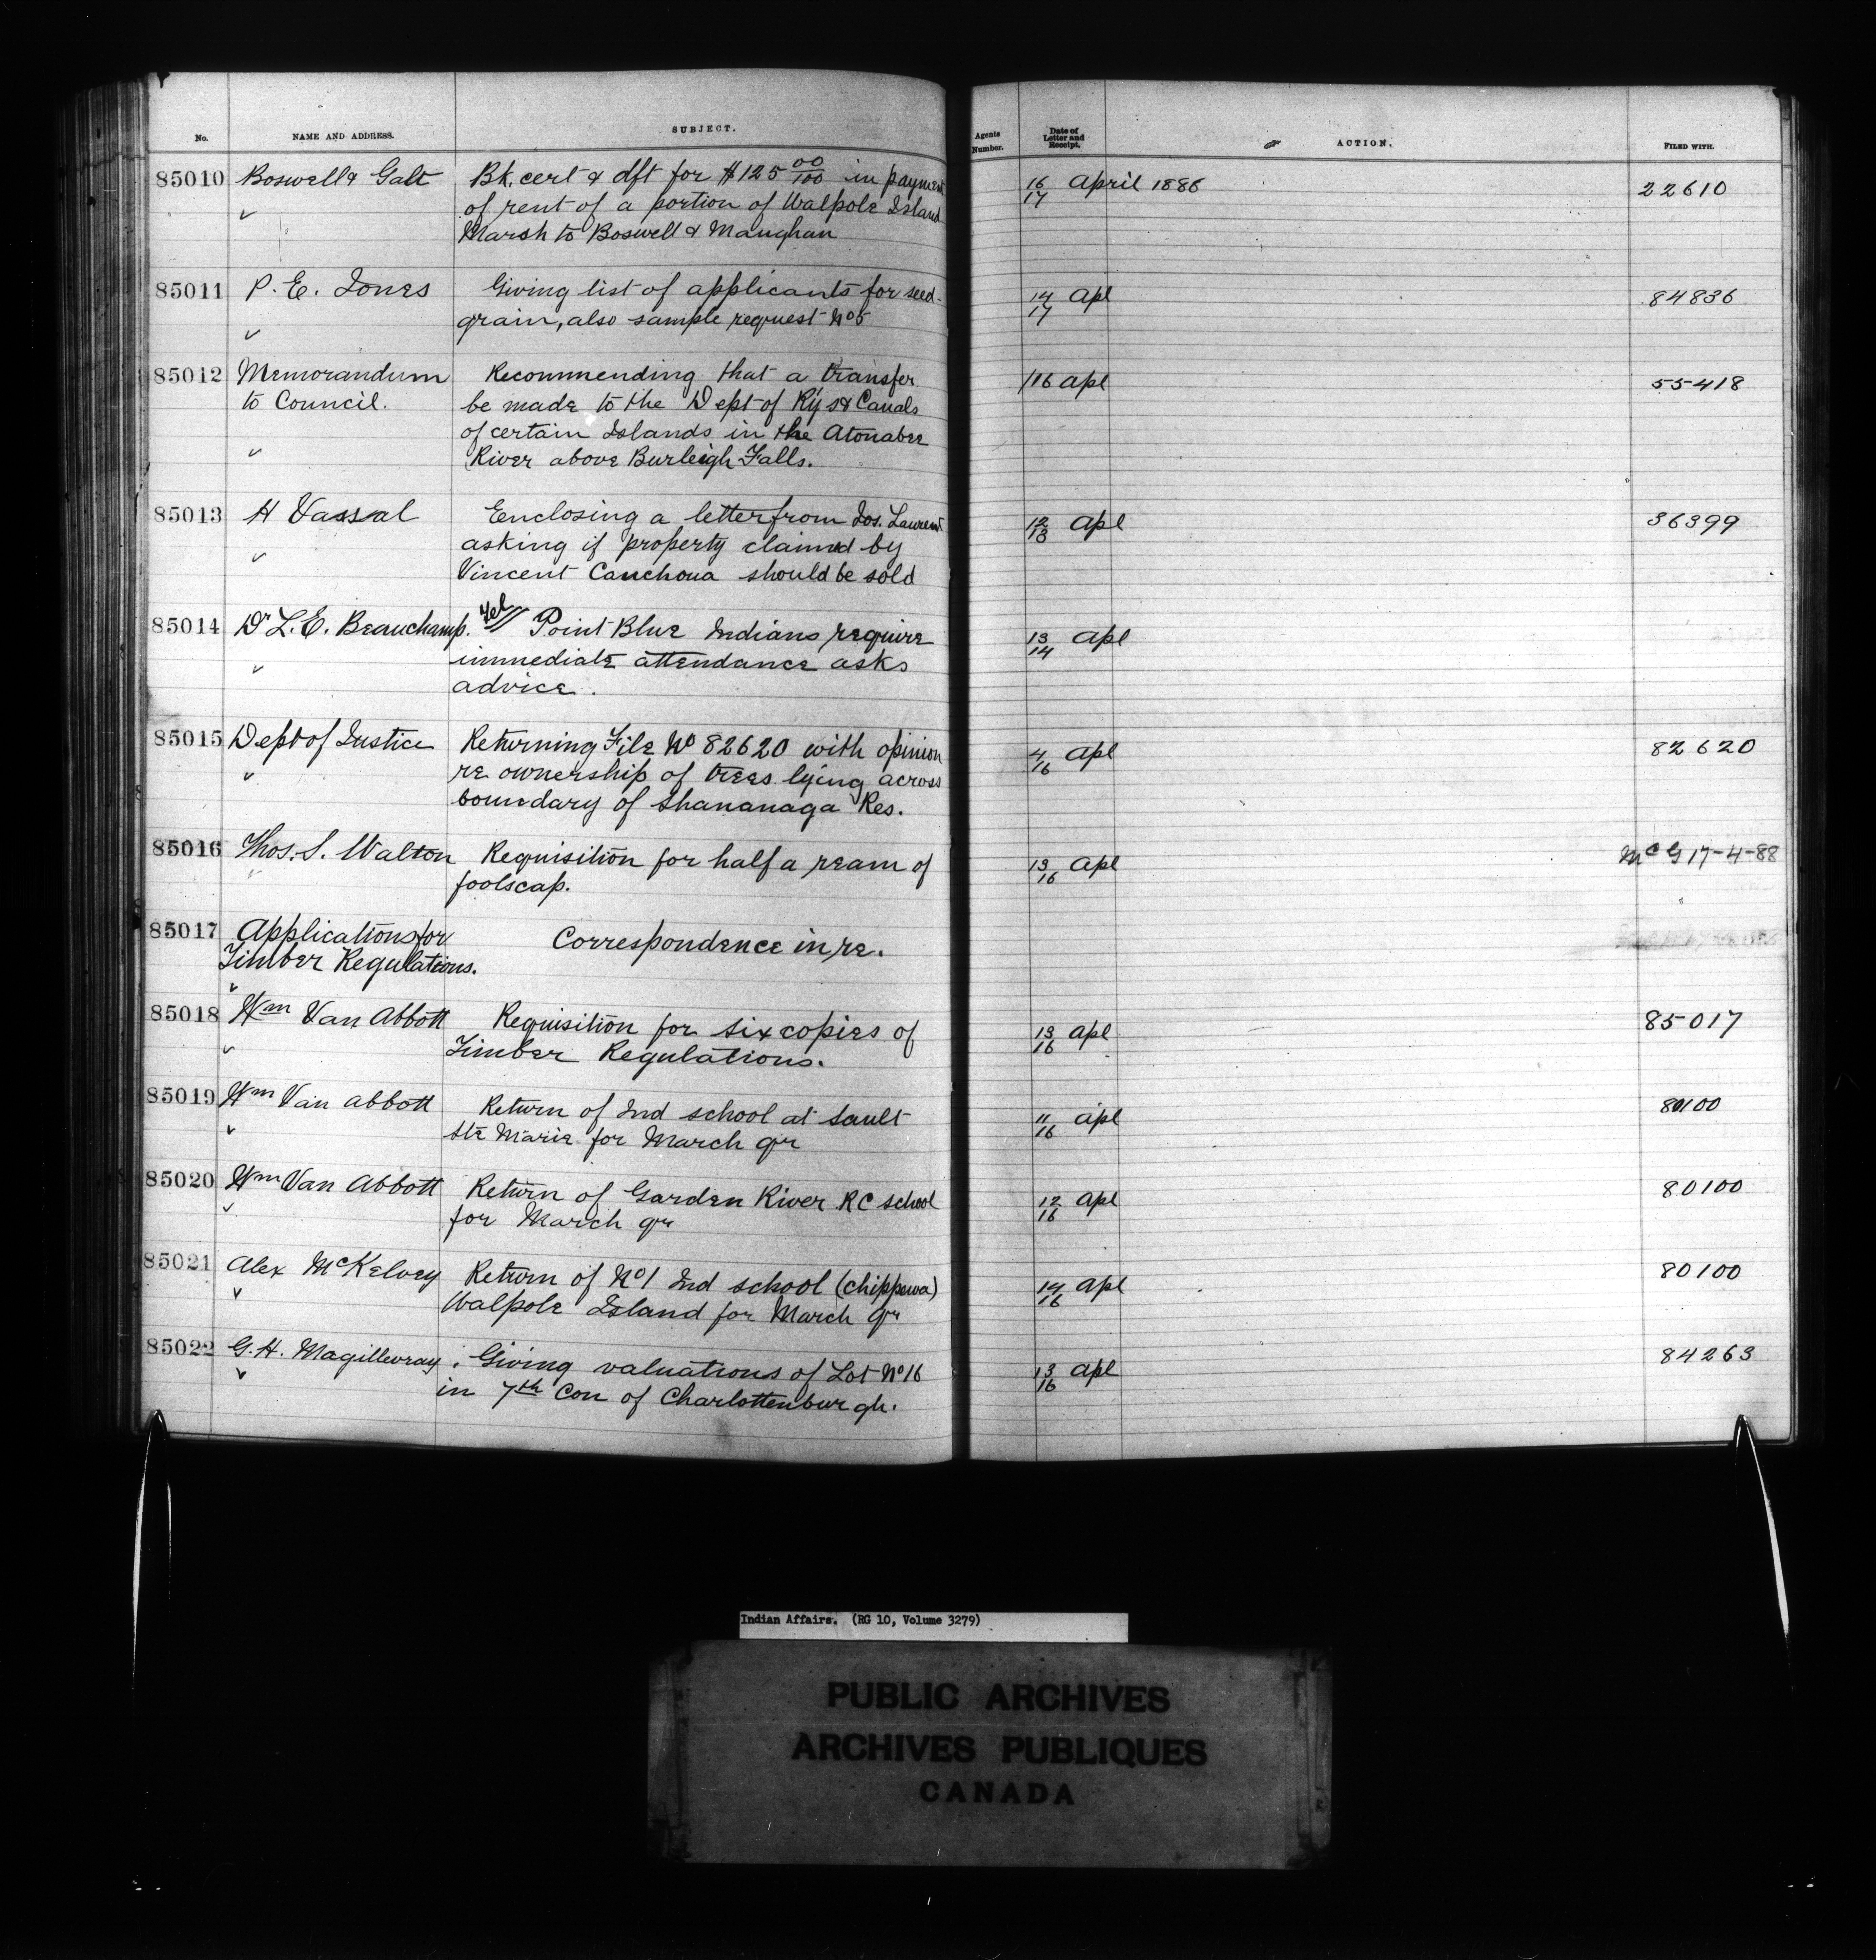 No. NAME AND ADDRESS. SUBJECT. Agents Number. Date of Letter and Receipt. ACTION. FILED WITH.
85010 Boswell & Galt Bk. cert & dft for $125 00/100 in payment 16/17 April 1888 22610
of rent of a portion of Walpole Island
Marsh to Boswell & Maughan
85011 P. E. Jones Giving list of applicants for seed- 14/17 Apl 84836
grain, also sample request No 5
85012 Memorandum Recommending that a transfer /16 Apl 55418
to Council. be made to the Dept of Ry's & Canals
of certain Islands in the Atonabee
River above Burleigh Falls.
85013 H Vassal Eenclosing a letter from Jos. Laurent 12/13 Apl 36399
asking if property claimed by
Vincent Canchoua should be sold
85014 Dr L. E. Beauchamp. Tel Point Blue Indians require 13/14 Apl
immediate attendance asks
advice.
85015 Dept of Justice Returning File No 82620 with opinion 4/16 Apl 82620
re ownership of trees lying across
boundary of Shananaga Res.
85016 Thos. S. Walton Requisition for half a ream of 13/16 Apl McG 17-4-88
foolscap.
85017 Applications for Correspondence in re.
Timber Regulations.
85018 Wm Van Abbott Requisition for six copies of 13/16 Apl 85017
Timber Regulations.
85019 Wm Van Abbott Return of Ind school at Sault 11/16 Apl 80100
Ste Marie for March qr
85020 Wm Van Abbott Return of Garden River RC school 12/16 Apl 80100
for March qr
85021 Alex McKelvey Return of No 1 Ind school (Chippewa) 14/16 Apl 80100
Walpole Island for March qr
85022 G. H. Magillevray Giving valuations of Lot No 16 13/16 Apl 84263
in 7th Con of Charlottenburgh.
Indian Affairs. (RG 10, Volume 3279)
PUBLIC ARCHIVES
ARCHIVES PUBLIQUES
CANADA